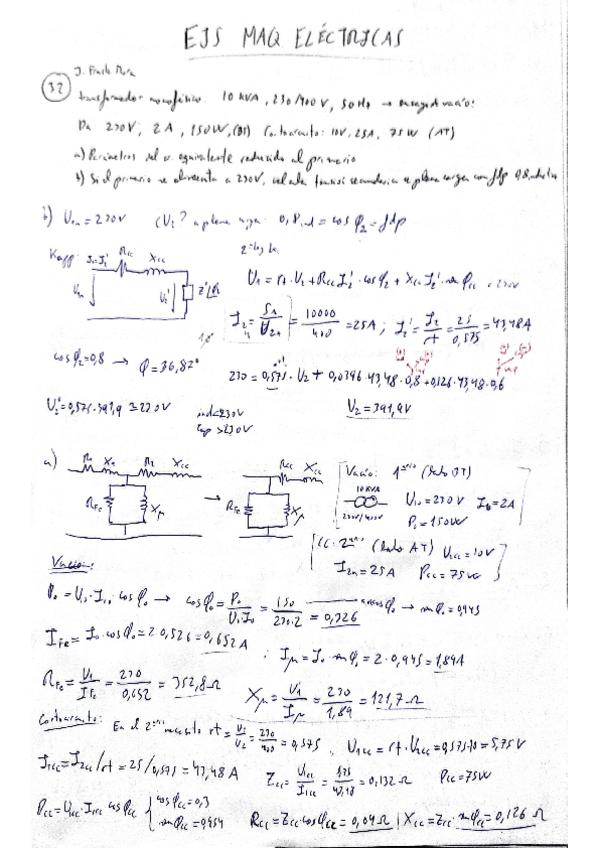 EJS MAQ ELÉCTRICAS
J. Fraile Mora
3.2
transformador monofásico. 10 KVA, 230/400V, 50Hz → ensayo de vacío:
Da 230V, 2A, 150W, (BT) Cortocircuito: 10V, 25A, 75W (AT)
a) Parámetros del c. equivalente reducido al primario
b) Si el primario se alimenta a 230V, calcula tensión secundaria a plena carga con fdp 0,8 inductivo
b) U₁ₙ = 230V ¿U₂? a plena carga: 0,8 ind = cos φ₂ = fdp
Kapp: I₁=I₂' Rcc Xcc
U₁ = rt·U₂ + Rcc I₂'·cos φ₂ + Xcc I₂'·sen φcc = 230V
U₁ₙ U₂' Z'
I₂ = S₁/U₂ₙ = 10000/400 = 25A ; I₂' = I₂/rt = 25/0,575 = 43,48A
cos φ₂ = 0,8 → φ = 36,82°
230 = 0,575·U₂ + 0,0396·43,48·0,8 + 0,126·43,48·0,6
U₂' = 0,575·391,9 ≅ 230V ind<230V
cap >230V
U₂ = 391,9V
a) R₁ X₁ R₂ Xcc
RFe Xμ → RFe Xμ
Rcc Xcc
Vacío: 1ᵃʳⁱᵒ (lado BT)
10 KVA
230V/400V
U₁₀ = 230V I₀ = 2A
P₀ = 150W
CC: 2ᵃʳⁱᵒ (lado AT) U₂cc = 10V
I₂ₙ = 25A Pcc = 75W
Vacío:
P₀ = U₁·I₁₀·cos φ₀ → cos φ₀ = P₀/U₁·I₀ = 150/230·2 = 0,326 → sen φ₀ = 0,945
IFe = I₀·cos φ₀ = 2·0,326 = 0,652A ; Iμ = I₀·sen φ₀ = 2·0,945 = 1,89A
RFe = U₁/IFe = 230/0,652 = 352,8Ω
Xμ = U₁/Iμ = 230/1,89 = 121,7Ω
Cortocircuito: En el 2ᵃʳⁱᵒ necesito rt = U₁/U₂ = 230/400 = 0,575 , U₁cc = rt·U₂cc = 0,575·10 = 5,75V
I₁cc = I₂cc/rt = 25/0,575 = 43,48A
Zcc = U₁cc/I₁cc = 5,75/43,48 = 0,132Ω Pcc = 75W
Pcc = U₁cc·I₁cc cos φcc { cos φcc = 0,3
sen φcc = 0,954
Rcc = Zcc·cos φcc = 0,04Ω | Xcc = Zcc·sen φcc = 0,126Ω